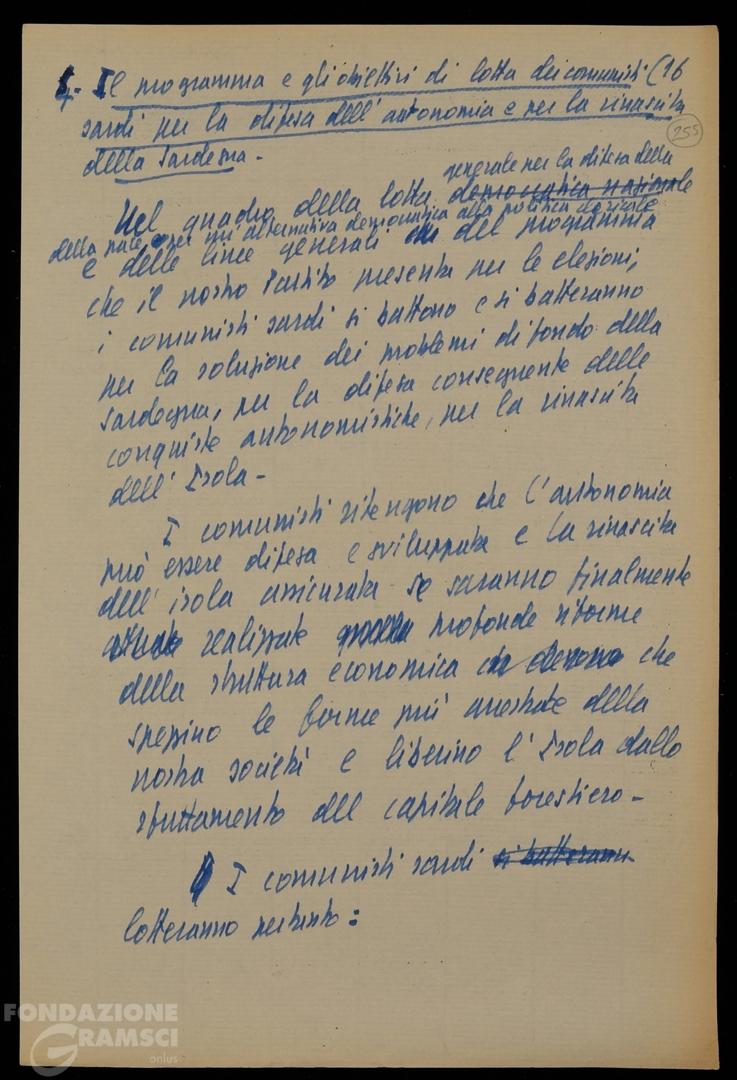 4. Il programma e gli obiettivi di lotta dei comunisti (16
sardi per la difesa dell'autonomia e per la rinascita
255
della Sardegna -
generale per la difesa della
Nel quadro della lotta democratica nazionale
della pace e per un'alternativa democratica alla politica
e delle linee generali del programma
che il nostro Partito presenta per le elezioni,
i comunisti sardi si battono e si batteranno
per la soluzione dei problemi di fondo della
Sardegna, per la difesa conseguente delle
conquiste autonomistiche, per la rinascita
dell'Isola -
I comunisti ritengono che l'autonomia
può essere difesa e sviluppata e la rinascita
dell'isola assicurata se saranno finalmente
realizzate profonde riforme
della struttura economica che
spezzino le forme più arretrate della
nostra società e liberino l'Isola dallo
sfruttamento del capitale forestiero -
I comunisti sardi si batteranno
lotteranno pertanto:
FONDAZIONE
GRAMSCI
onlus